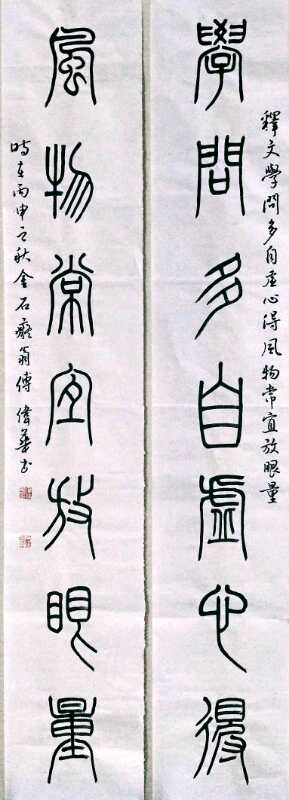 學問多自虛心得
釋文學問多自虛心得風物常宜放眼量
風物常宜放眼量
時在丙申之秋金石癡翁傅偉華書